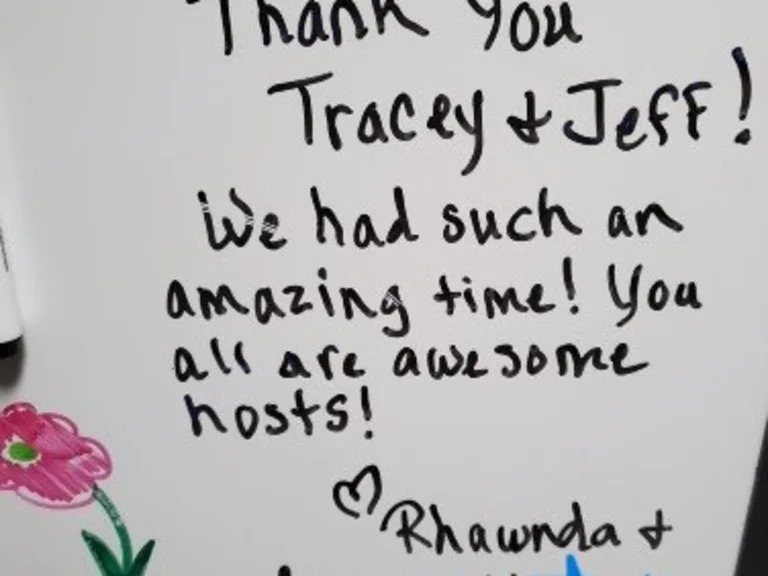 Thank You
Tracey & Jeff!
We had such an
amazing time! You
all are awesome
hosts!
♡ Rhawnda &